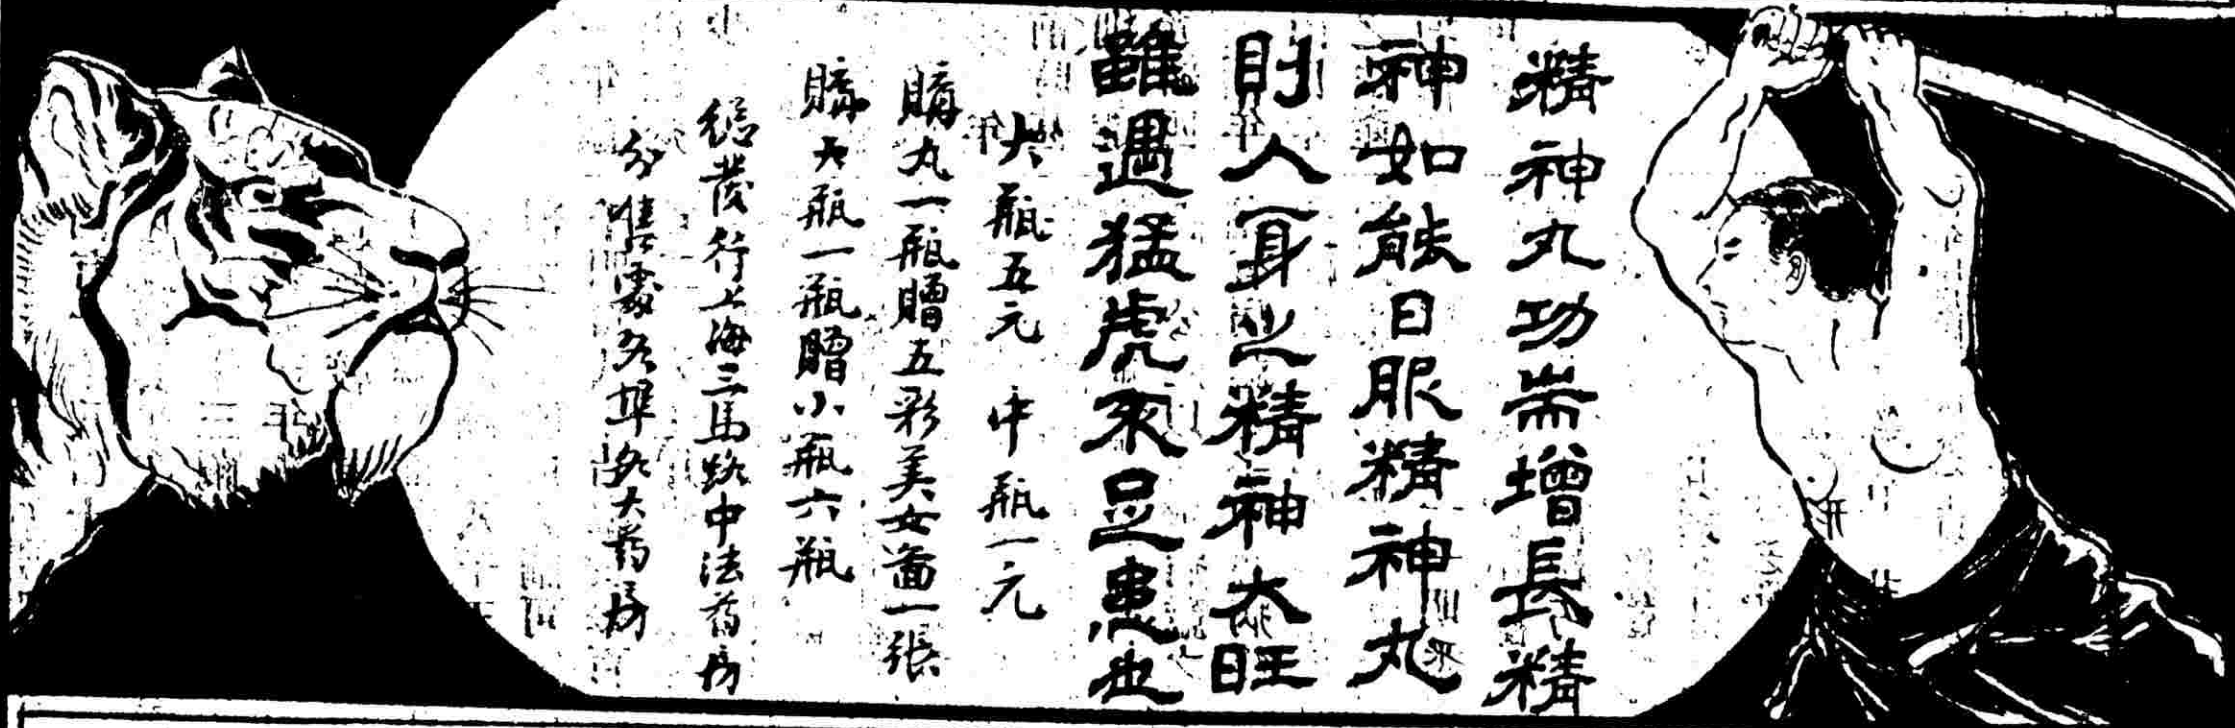 精神丸功耑增長精
神如能日服精神丸
則人身之精神大旺
雖遇猛虎不足患也
大瓶五元 中瓶一元
購丸一瓶贈五彩美女畫一張
購大瓶一瓶贈小瓶六瓶
總發行上海三馬路中法葯房
分售處各埠各大葯房